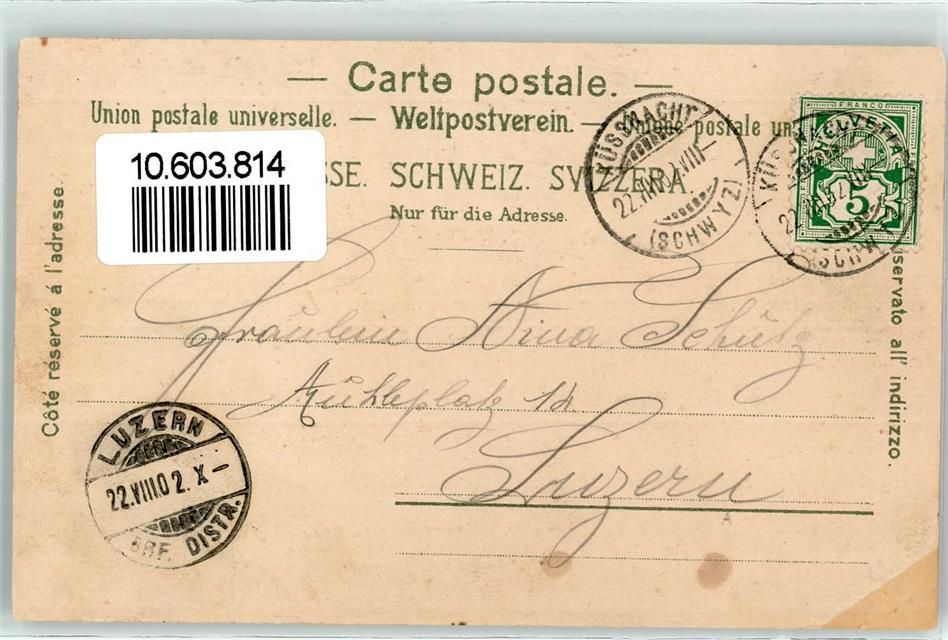 — Carte postale. —
Union postale universelle. — Weltpostverein. — Unione postale un
10.603.814
SSE. SCHWEIZ. SVIZZERA.
Nur für die Adresse.
Côté réservé à l'adresse.
riservato all' indirizzo.
KÜSSNACHT
22.VIII.02.VIII—
(SCHWYZ)
FRANCO
HELVETIA
5
KÜSSN
22.VIII.02
(SCHWY
Fräulein Nina Schütz
Mühleplatz
Luzern
LUZERN
22.VIII.02. X—
BRF. DISTR.
A